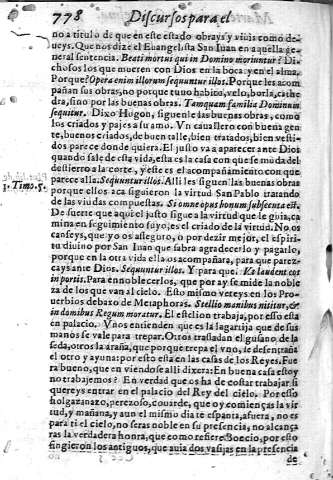 778 Discursos para el
no a titulo de que en este estado obrays y viuis como de-
ueys. Que nos dize el Euangelista San Iuan en aquella ge-
neral sentencia. Beati mortui qui in Domino moriuntur? Di-
chosos los que mueren con Dios en la boca y en el alma.
Porque? Opera enim illorum sequuntur illos. Porque les acom
pañan sus obras, no porque tuuo habito, velo, borla, cathe
dra, sino por las buenas obras. Tamquam familia Dominum
sequitur. Dixo Hugon, siguenle las buenas obras, como
los criados y pajes a su amo. Vn cauallero con buena gen
te, buenos criados, de buen talle, bien tratados, bien vesti-
dos parece donde quiera. El justo va a aparecer ante Dios
quando sale de esta vida, esta es la casa con que se muda del
destierro a la corte, y este es el acompañamiento con que
parece alla. Sequuntur illos. Alli les siguen las buenas obras
1. Timo. 5. porque ellos aca siguieron la virtud San Pablo tratando
de las viudas compuestas. Si omne opus bonum subsecuta est.
De suerte que aqui el justo sigue a la virtud que le guia, ca
mina en seguimiento suyo, es el criado de la virtud. No os
canseys, que yo os asseguro, o por dezir mejor, el espiri-
tu diuino por San Iuan que sabra agradecerlo y pagarlo,
porque en la otra vida ella os acompañara, para que parez-
cays ante Dios. Sequuntur illos. Y para que. Vt laudent eos
in portis. Para ennoblecerlos, que por ay se mide la noble
za de los que van al cielo. Esto mismo vereys en los Pro-
uerbios debaxo de Metaphoras. Stellio manibus nititur, &
in domibus Regum moratur. El estelion trabaja, por esso esta
en palacio. Vnos entienden que es la lagartija que de sus
manos se vale para trepar. Otros trasladan el gusano de la
seda, otros la araña, que porque trepa el vno, y se desentraña
el otro y ayuna: por esto estan en las casas de los Reyes. Fue
ra bueno, que en viendose alli dixera: En buena casa estoy
no trabajemos? En verdad que os ha de costar trabajar si
quereys entrar en el palacio del Rey del cielo. Por esso
holgazanazo, perezoso, couarde, que oy comienças la vir
tud, y mañana, y aun el mismo dia te espanta, afuera, no es
para ti el cielo, no seras noble en su presencia, no alcança
ras la verdadera honra, que como refiere Boecio, por esto
fingieron los antiguos, que auia dos vasijas en la presencia
de